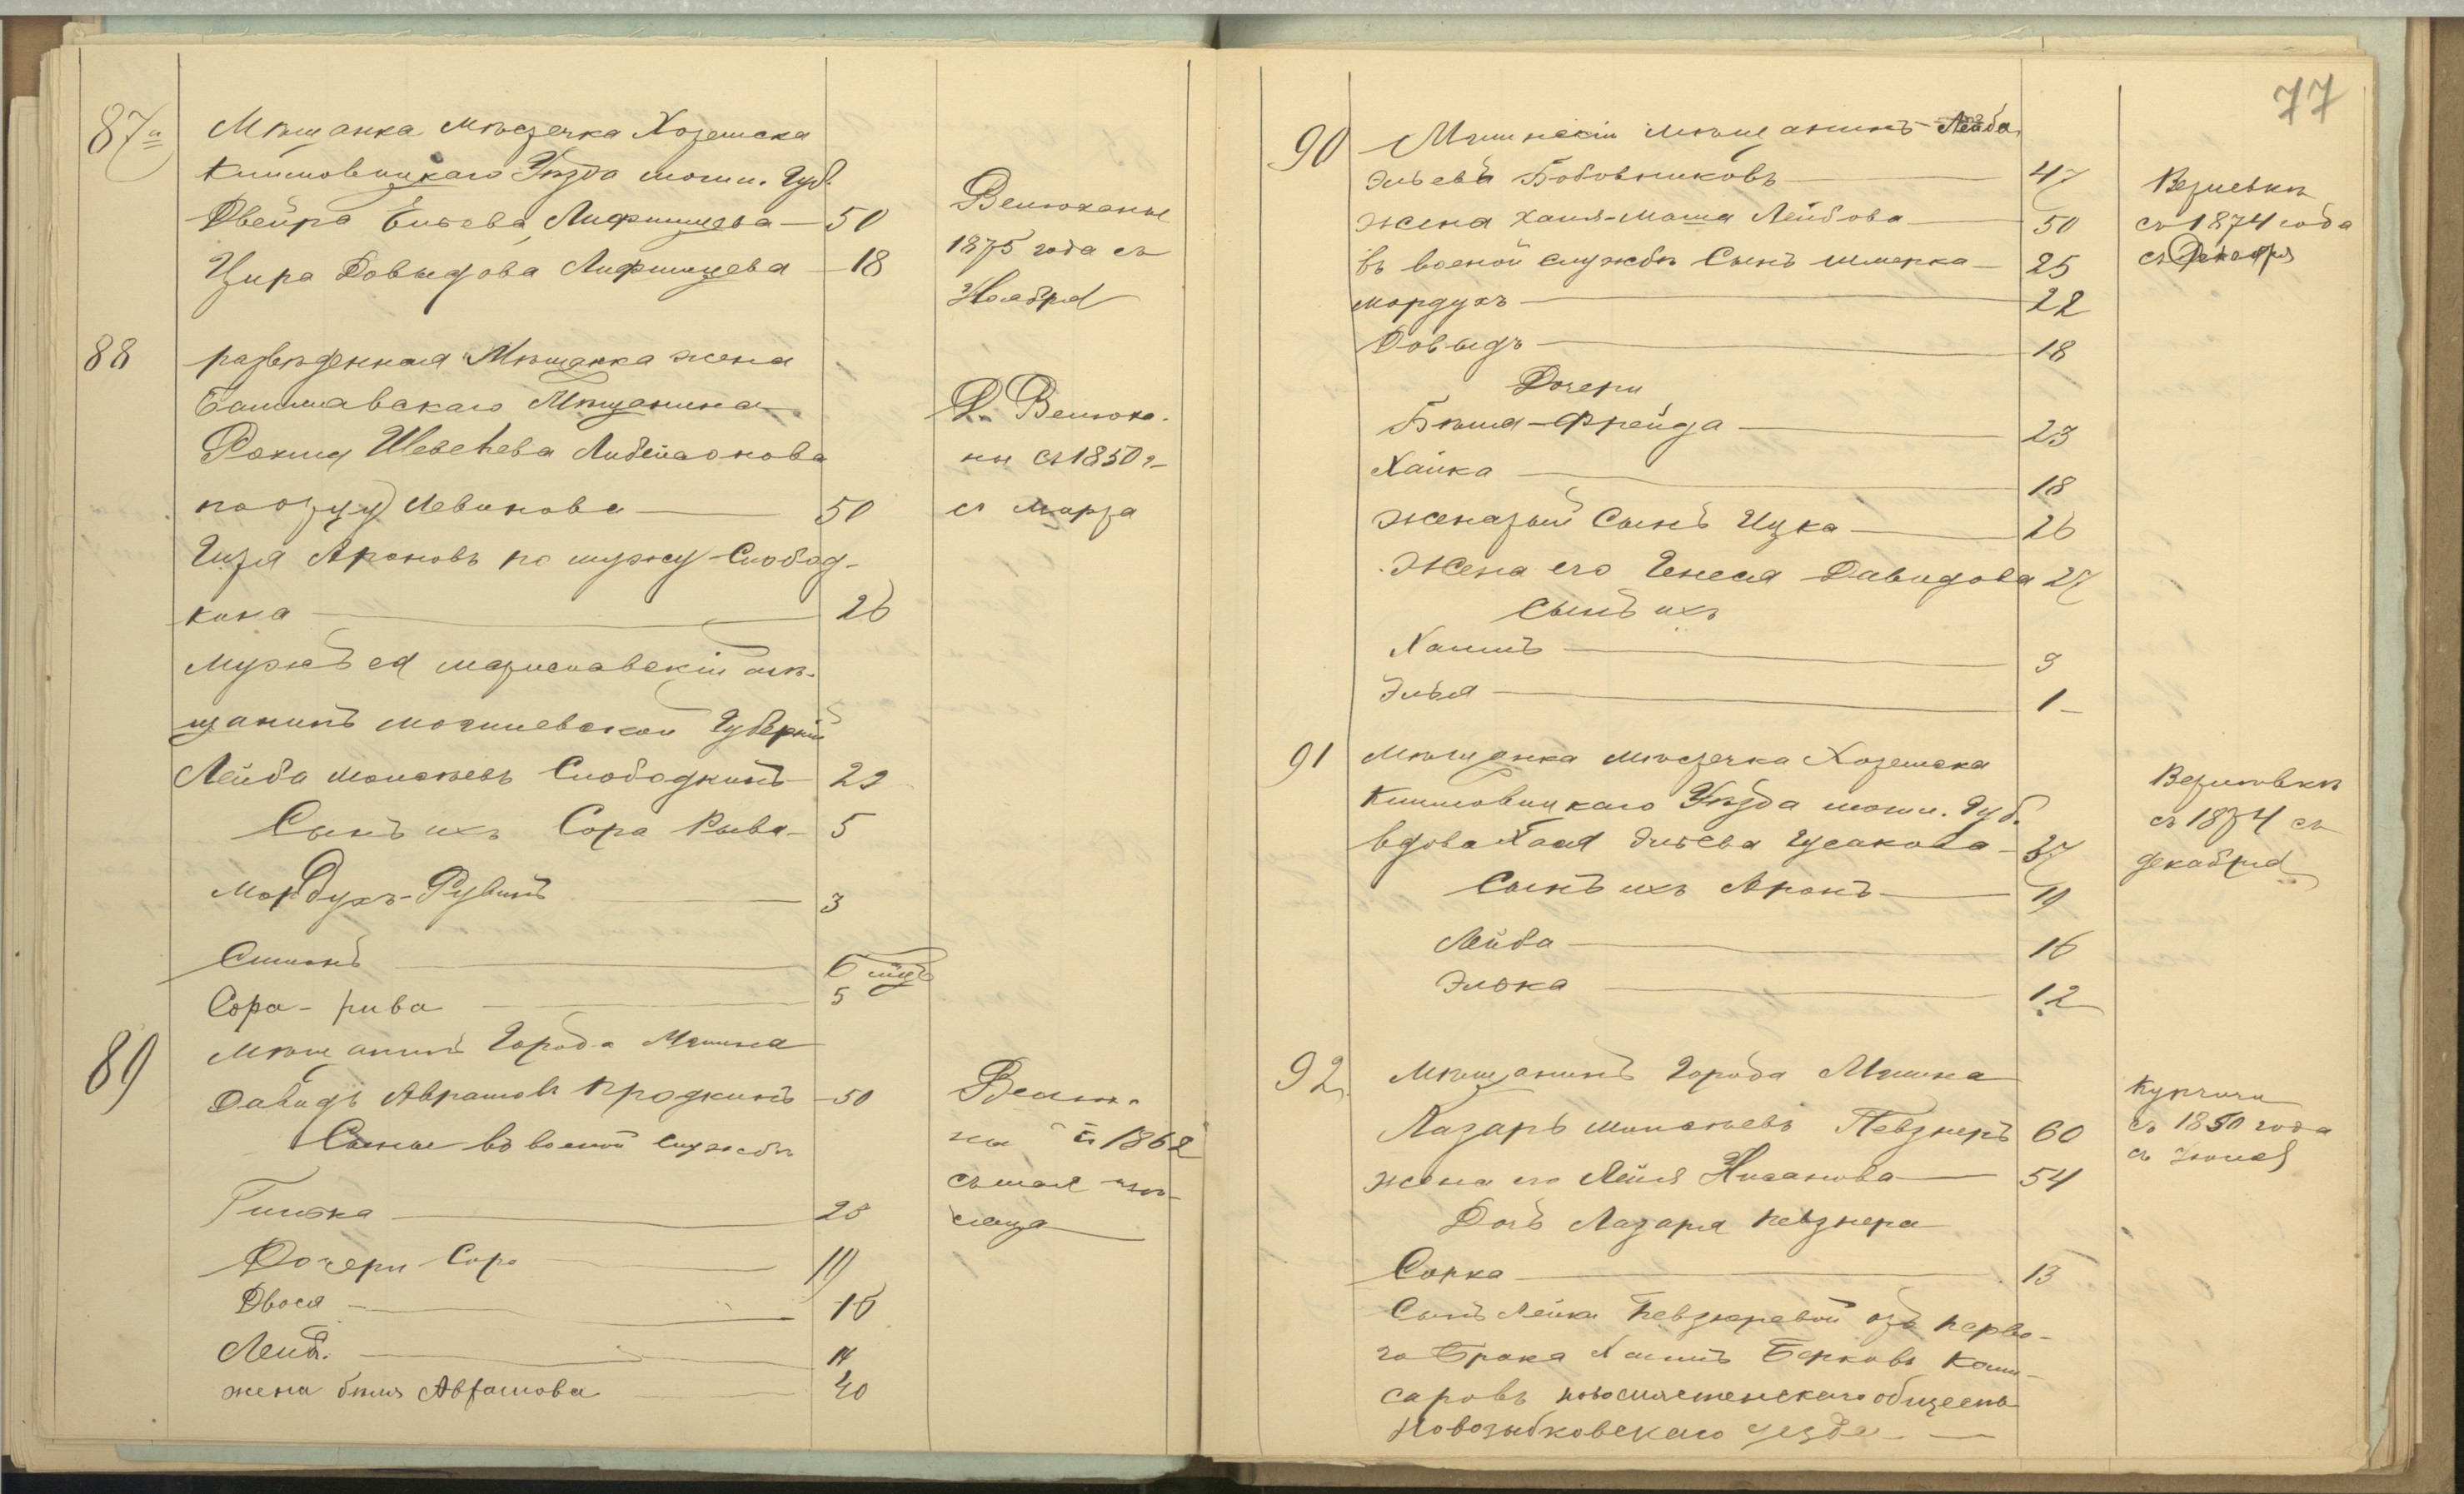 87а
Мѣщанка мѣстечка Хотимска
Климовицкаго Уѣзда могил. Губ.
Двейра Ельева Лифшицева — 50
Цира Довыдова Лифшицева — 18
Велюханы
1875 года съ
Ноября
88
разведенная Мѣщанка жена
Мѣщанина
Рохля Шевелева
по отцу) Левинова — 50
Гитя Ароновъ по мужу Слобод-
кина — 26
Мужъ ея мстиславскій мѣ-
щанинъ могилевской Губерніи
Лейба Мовшевъ Слободкинъ — 29
Сынъ ихъ Сора Рыва — 5
Мордухъ-Рувинъ — 3
Симонъ — 6 мѣс
Сора-рива — 5
Д. Велюха-
ны съ 1850 г
съ марта
89
Мѣщанинъ Города Мглина
Давидъ Аврамовъ Продкинъ — 50
Сынъ въ военой службѣ
Гилька — 28
Дочери Сора — 19
Двося — 16
Лейб. — 14
жена Авраамова — 40
Велюха-
ны съ 1862
съ мая мѣ-
сяца
77
90
Мглинскій мѣщанинъ Лейба
Эльевъ Бобовниковъ — 47
жена Хая-Маша Лейбова — 50
въ военой службѣ Сынъ Шмерка — 25
Мордухъ — 22
Довыдъ — 18
Дочери
Бейля-Фрейда — 23
Хайка — 18
женатый Сынъ Ицка — 26
Жена его Генеся Давидова 27
Сынъ ихъ
Хаимъ — 3
Элья — 1
съ 1874 года
съ Декабря
91
Мѣщанка мѣстечка Хотимска
Климовицкаго Уѣзда могил. Губ.
вдова Хася Эльева Гусакова — 37
Сынъ ихъ Аронъ — 19
Лейба — 16
Элька — 12
съ 1874 съ
декабря
92
Мѣщанинъ Города Мглина
Лазарь Мовшевъ Певзнеръ 60
жена его Лейя Нисанова — 54
Дочь Лазаря Певзнера
Сорка — 13
Сынъ Лейки Певзнеревой отъ перво-
го брака Хаимъ Берковъ Коми-
саровъ новомѣстенскаго общества
Новозыбковскаго уезда —
Курчичи
съ 1850 года
съ Июля